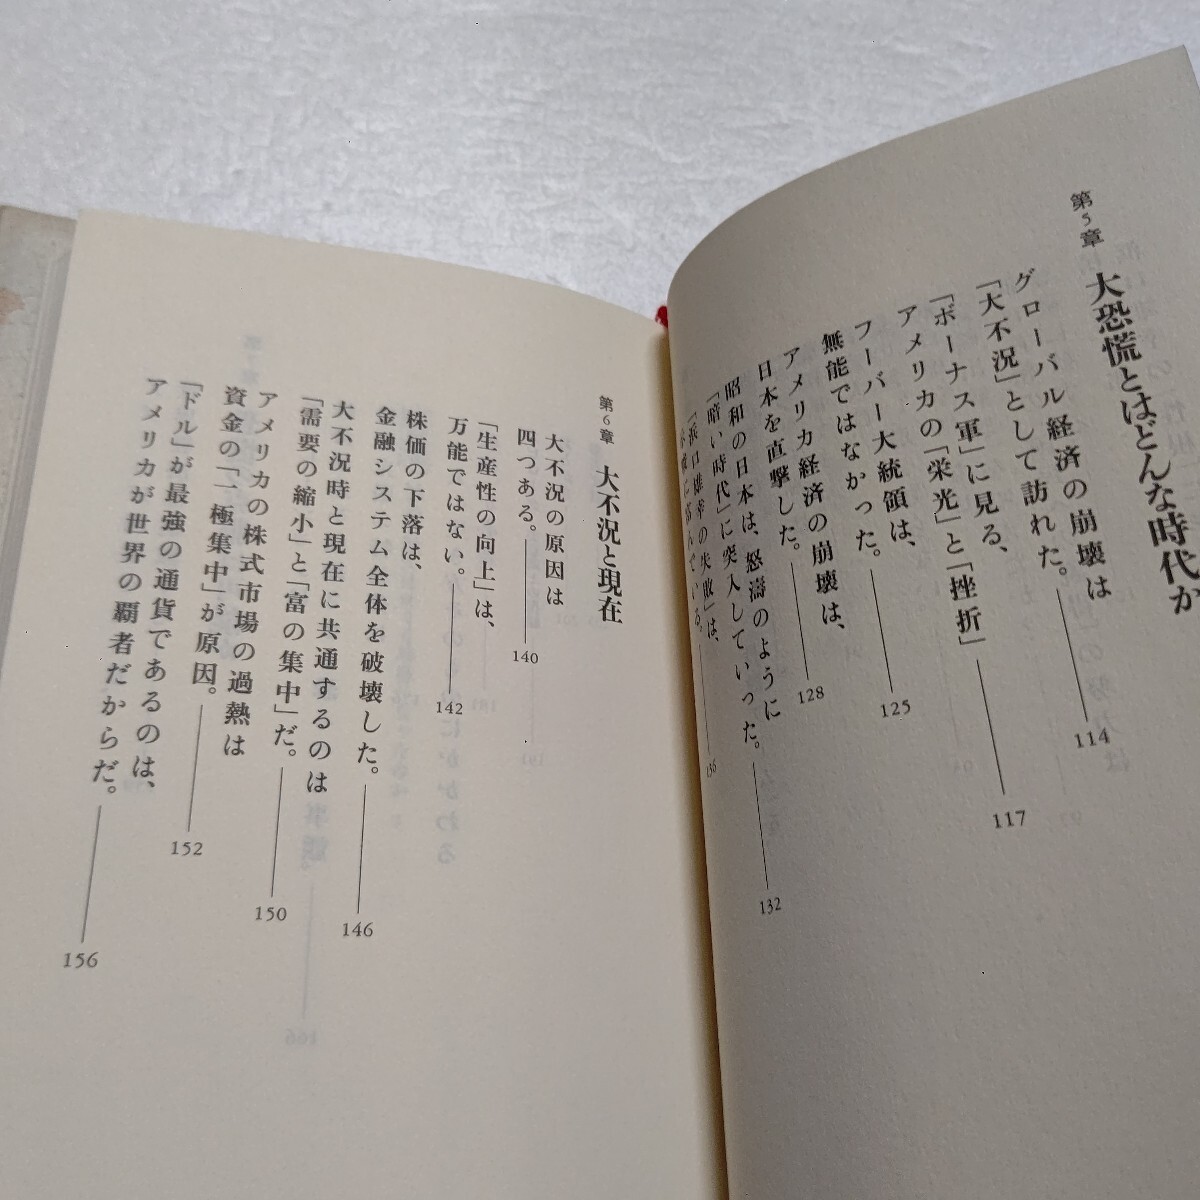 第5章 大恐慌とはどんな時代か
グローバル経済の崩壊は
「大不況」として訪れた。 114
「ボーナス軍」に見る、
アメリカの「栄光」と「挫折」 117
フーバー大統領は、
無能ではなかった。 125
アメリカ経済の崩壊は、
日本を直撃した。 128
昭和の日本は、怒濤のように
「暗い時代」に突入していった。 132
「浜口雄幸の失敗」は、
136
第6章 大不況と現在
大不況の原因は
四つある。 140
「生産性の向上」は、
万能ではない。 142
株価の下落は、
金融システム全体を破壊した。 146
大不況時と現在に共通するのは
「需要の縮小」と「富の集中」だ。 150
アメリカの株式市場の過熱は
資金の「一極集中」が原因。 152
「ドル」が最強の通貨であるのは、
アメリカが世界の覇者だからだ。 156